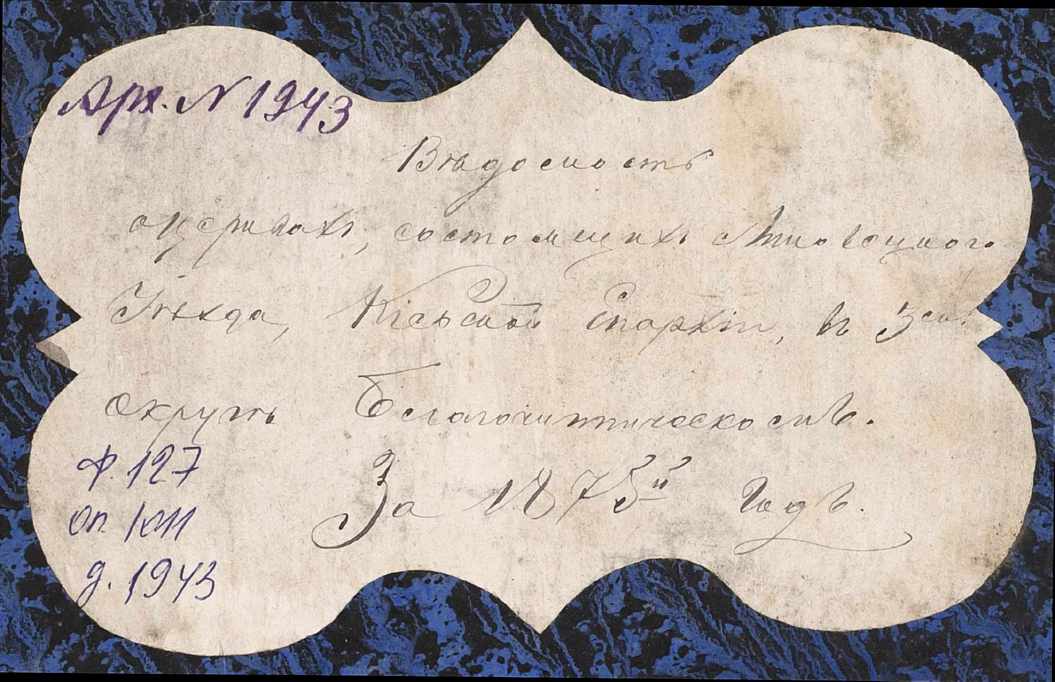 Арх. N 1943
Вѣдомость
о церквахъ, состоящихъ Липовецкого
Уѣзда, Кіевской Епархіи, въ 3ем.
округѣ Благочинническомъ.
Ф. 127
За 1875й годъ.
оп. 1011
д. 1943